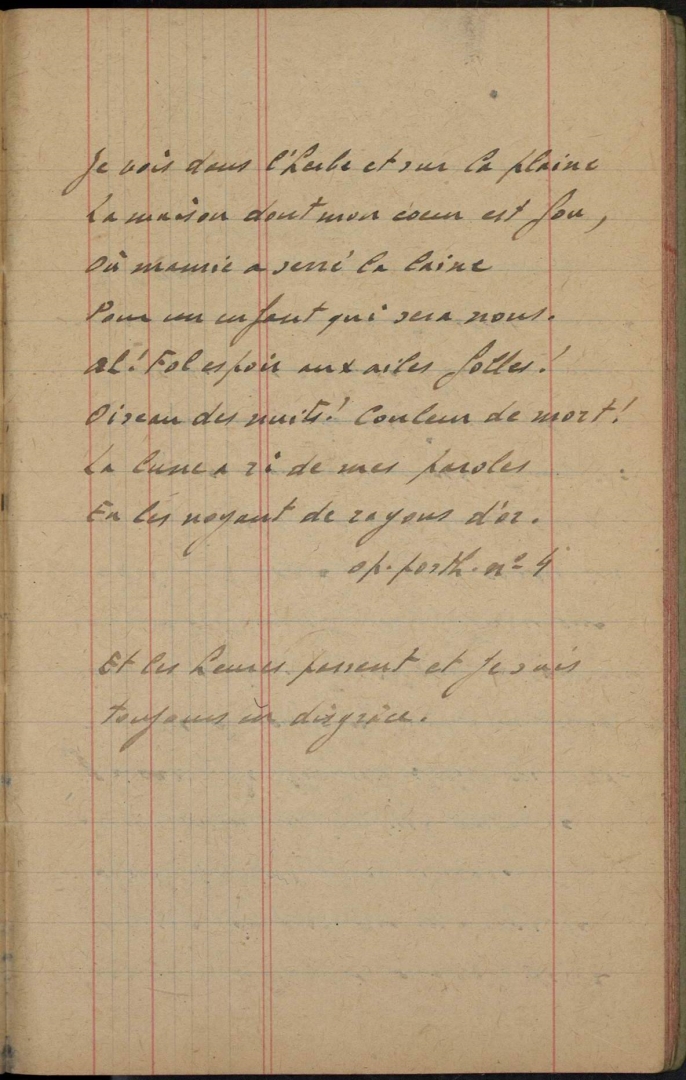 Je vois dans l'herbe et sur la plaine
La maison dont mon cœur est fou,
Où mamie a serré la laine
Pour un enfant qui sera nous.
Ah! Fol espoir aux ailes folles!
Oiseau des nuits! Couleur de mort!
La lune a ri de mes paroles
En les noyant de rayons d'or.
op. posth. nº 4
Et les heures passent et je suis
toujours en disgrâce.